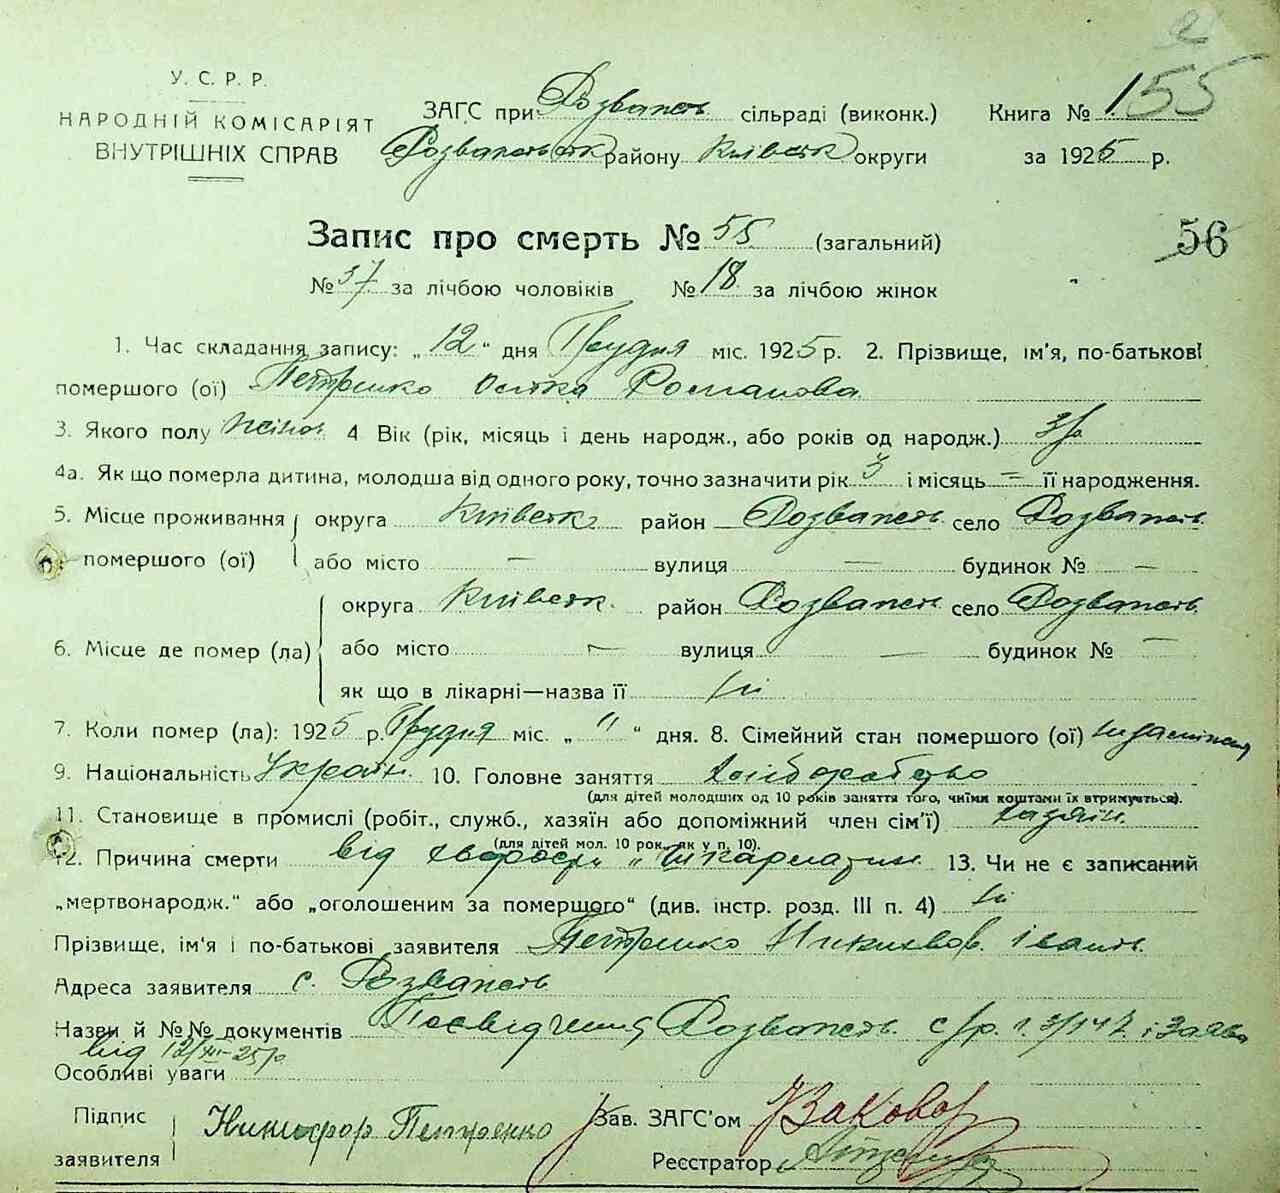 У. С. Р. Р.
НАРОДНІЙ КОМІСАРІЯТ
ВНУТРІШНІХ СПРАВ
ЗАГС при Розважеть сільраді (виконк.)
району Київськ округи
Книга № 155
за 1925 р.
Запис про смерть № 55 (загальний)
56
№ 37 за лічбою чоловіків № 18 за лічбою жінок
1. Час складання запису: „12“ дня Грудня міс. 1925 р. 2. Прізвище, ім'я, по-батькові
помершого (ої) Петренко Романова
3. Якого полу жіноч. 4 Вік (рік, місяць і день народж., або років од народж.) 3 р.
4а. Як що померла дитина, молодша від одного року, точно зазначити рік 3 і місяць — її народження.
5. Місце проживання помершого (ої) округа Київськ район село
або місто — вулиця — будинок № —
6. Місце де помер (ла) округа Київськ. район село
або місто — вулиця — будинок № —
як що в лікарні—назва її
7. Коли помер (ла): 1925 р. Грудня міс. „11“ дня. 8. Сімейний стан помершого (ої)
9. Національність Україн. 10. Головне заняття хліборобство
(для дітей молодших од 10 років заняття того, чиїми коштами їх втримується).
11. Становище в промислі (робіт., служб., хазяїн або допоміжний член сім'ї) хазяїн.
(для дітей мол. 10 рок., як у п. 10).
12. Причина смерти від хвороби „шкарлатин 13. Чи не є записаний
„мертвонародж.“ або „оголошеним за померщого“ (див. інстр. розд. III п. 4)
Прізвище, ім'я і по-батькові заявителя Петренко
Адреса заявителя с.
Назви й №№ документів Посвідчення с/р. і заява
від 12/XII-25 р.
Особливі уваги
Підпис заявителя Никифор Петренко
Зав. ЗАГС'ом
Реєстратор